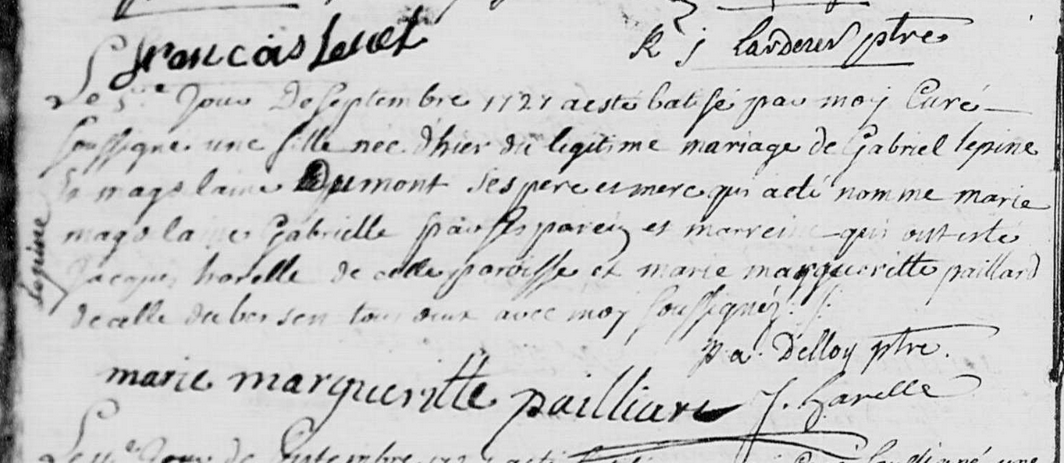 françois Lenet
R j Larderer ptre
Le 5.me Jour De septembre 1727 a esté batisé par moy Curé
soussigné une fille née d'hier du legitime mariage de Gabriel lepine
& magdelaine Dumont ses pere et mere qui a été nommé marie
lepine
magdelaine Gabrielle par ses parein et marreine qui ont esté
Jacques harelle de celle paroisse et marie margueritte paillard
de celle de bersen tous deux avec moy soussignéz
p a Delloy ptre.
marie margueritte pailliare J. harelle
Jour de Septembre